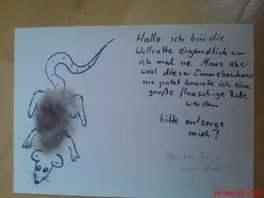 Hallo ich bin die
Wollratte eigendlich war
ich mal ne Maus aber
weil diese Zimmerbewohner
nie putzt konnte ich eine
große flauschige Ratte
werden
bitte entsorge
mich!